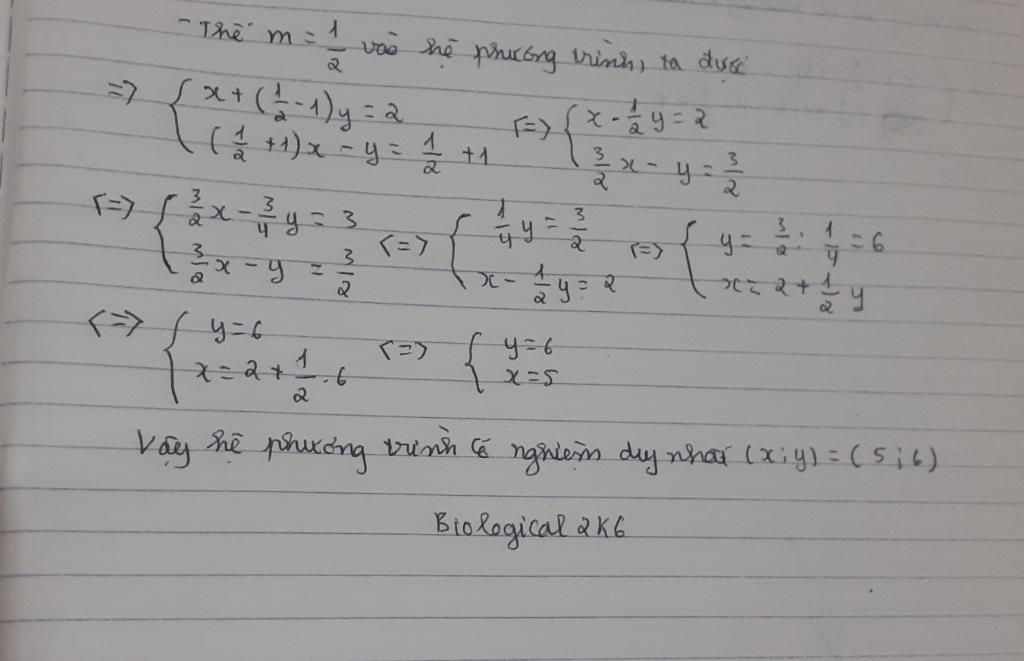 - Thế m = 1/2 vào hệ phương trình, ta được
=> { x + (1/2 - 1)y = 2 ; (1/2 + 1)x - y = 1/2 + 1 <=> { x - 1/2 y = 2 ; 3/2 x - y = 3/2
<=> { 3/2 x - 3/4 y = 3 ; 3/2 x - y = 3/2 <=> { 1/4 y = 3/2 ; x - 1/2 y = 2 <=> { y = 3/2 : 1/4 = 6 ; x = 2 + 1/2 y
<=> { y = 6 ; x = 2 + 1/2 . 6 <=> { y = 6 ; x = 5
Vậy hệ phương trình có nghiệm duy nhất (x; y) = (5; 6)
Biological 2K6